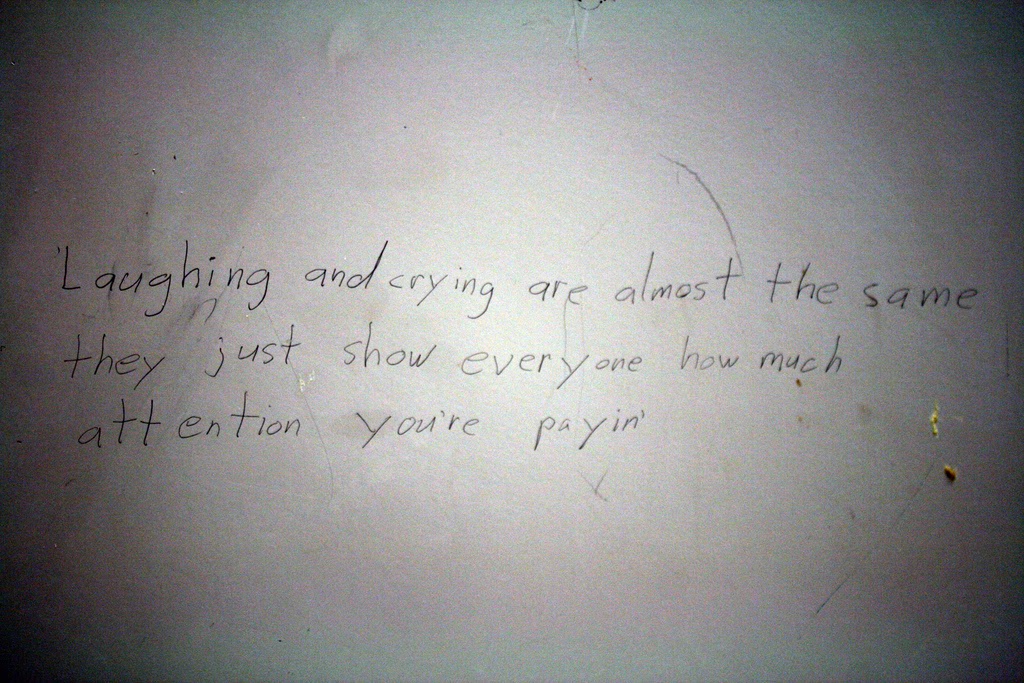 'Laughing and crying are almost the same
they just show everyone how much
attention you're payin'